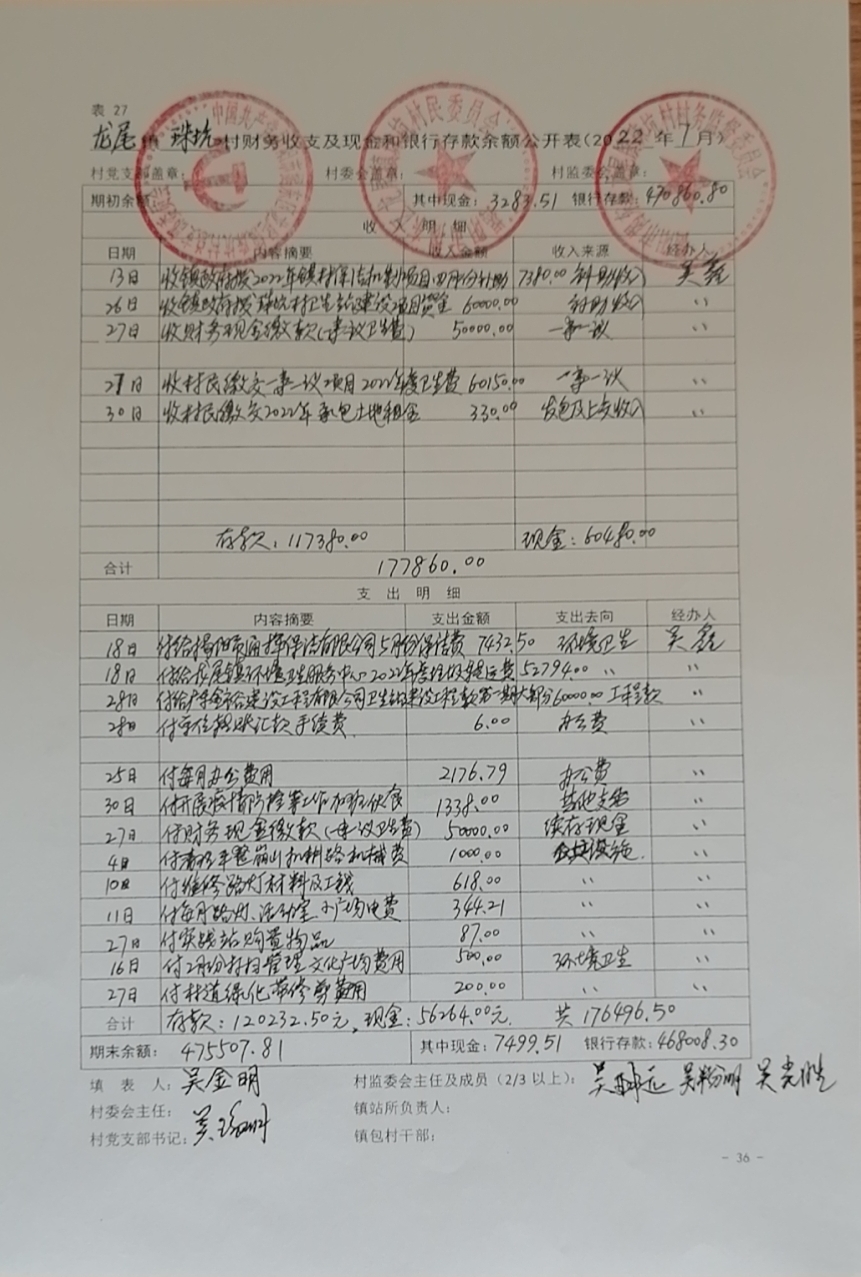 表 27
龙尾镇 珠坑村财务收支及现金和银行存款余额公开表(2022年7月)
村党支部盖章: 村委会盖章: 村监委会盖章:
期初余额 其中现金: 3283.51 银行存款: 470860.80
收入明细
日期 内容摘要 收入金额 收入来源 经办人
13日 收镇政府拨2022年镇村保洁机制项目四月份补助 7380.00 补助收入 吴鑫
26日 收镇政府拨珠坑村卫生站建设项目资金 60000.00 补助收入 〃
27日 收财务现金缴款(一事一议卫生费) 50000.00 一事一议 〃
27日 收村民缴交一事一议项目2022年度卫生费 60150.00 一事一议 〃
30日 收村民缴交2022年承包土地租金 330.00 发包及上交收入 〃
存款: 117380.00 现金: 60480.00
合计 177860.00
支出明细
日期 内容摘要 支出金额 支出去向 经办人
18日 付给揭阳市 保洁有限公司5月份保洁费 7432.50 环境卫生 吴鑫
18日 付给龙尾镇环境卫生服务中心2022年度垃圾转运费 52794.00 〃 〃
28日 付给 建设工程有限公司卫生站建设工程款第一期大部分 60000.00 工程款 〃
28日 付 转账汇款手续费 6.00 办公费 〃
25日 付每月办公费用 2176.79 办公费 〃
30日 付开展疫情防控等工作加班伙食 1338.00 其他支出 〃
27日 付财务现金缴款(一事一议卫生费) 50000.00 续存现金 〃
4日 付 平整 路机械费 1000.00 公共设施 〃
10日 付维修路灯材料及工钱 618.00 〃 〃
11日 付每月路灯、活动室、广场电费 344.21 〃 〃
27日 付实践站购置物品 87.00 〃 〃
16日 付2月份村扫管理文化广场费用 500.00 环境卫生 〃
27日 付村道绿化带修剪费用 200.00 〃 〃
合计 存款: 120232.50元, 现金: 56264.00元. 共 176496.50
期末余额: 475507.81 其中现金: 7499.51 银行存款: 468008.30
填 表 人: 吴金明 村监委会主任及成员(2/3以上): 吴 吴粉明 吴光胜
村委会主任: 镇站所负责人:
村党支部书记: 镇包村干部:
- 36 -